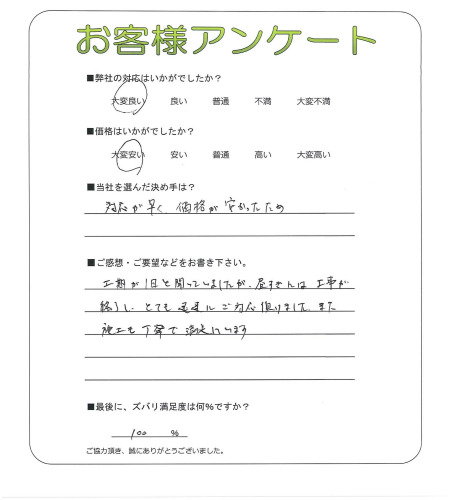 お客様アンケート
■弊社の対応はいかがでしたか？
大変良い 良い 普通 不満 大変不満
■価格はいかがでしたか？
大変安い 安い 普通 高い 大変高い
■当社を選んだ決め手は？
対応が早く 価格が安かったため
■ご感想・ご要望などをお書き下さい。
工期が1日と聞いていましたが、昼すぎには工事が
終了し、とても迅速にご対応頂けました。また
施工も丁寧で満足しています
■最後に、ズバリ満足度は何%ですか？
100 %
ご協力頂き、誠にありがとうございました。